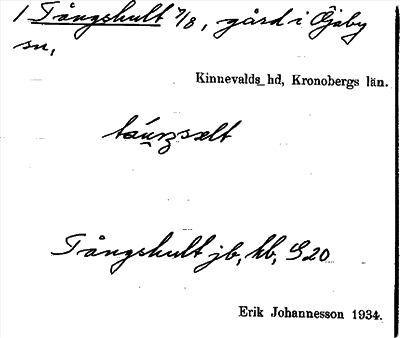 1 Tångshult 7/8, gård i Öjaby
sn,
Kinnevalds hd, Kronobergs län.
Tångshult jb, kb, G20
Erik Johannesson 1934.